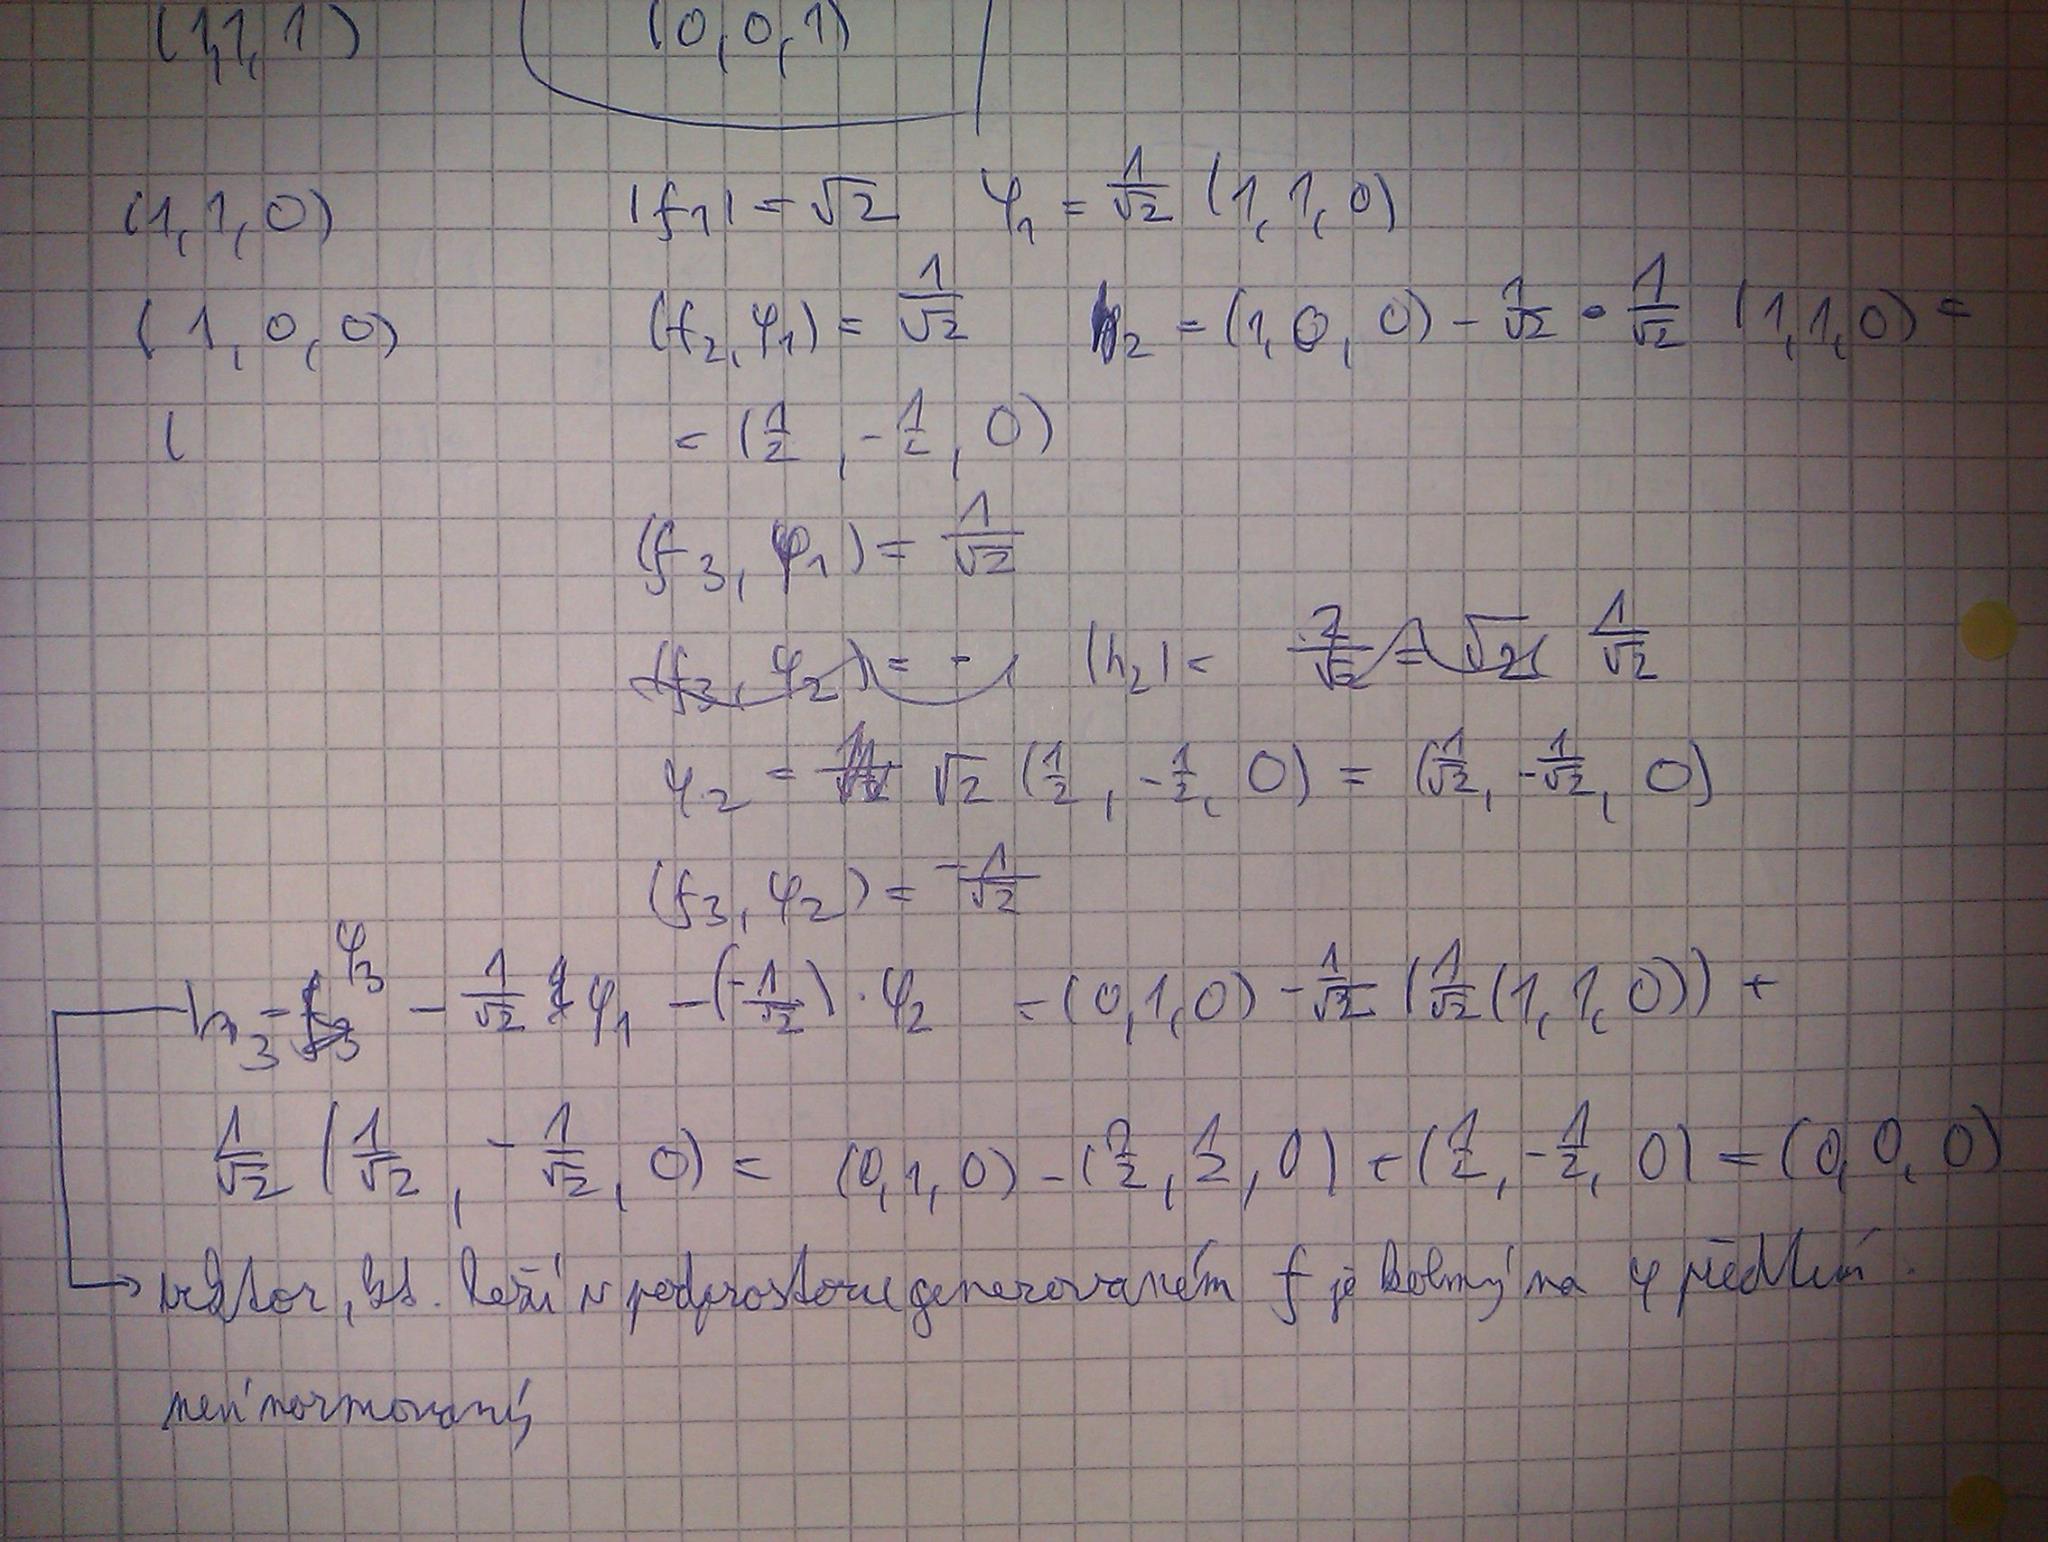 (1,1,1) (0,0,1)
(1,1,0) |f₁| = √2 φ₁ = 1/√2 (1,1,0)
(1,0,0) (f₂,φ₁) = 1/√2 h₂ = (1,0,0) - 1/√2 · 1/√2 (1,1,0) =
( = (1/2, -1/2, 0)
(f₃,φ₁) = 1/√2
(f₃,φ₂) = - |h₂| = 2/√2 = √2 1/√2
φ₂ = √2 (1/2, -1/2, 0) = (1/√2, -1/√2, 0)
(f₃,φ₂) = -1/√2
h₃ = φ₃ - 1/√2 φ₁ - (-1/√2) · φ₂ = (0,1,0) - 1/√2 (1/√2 (1,1,0)) +
1/√2 (1/√2, -1/√2, 0) = (0,1,0) - (1/2, 1/2, 0) + (1/2, -1/2, 0) = (0,0,0)
→ vektor, kt. leží v podprostoru generovaném f je kolmý na φ předchozí.
není normovaný